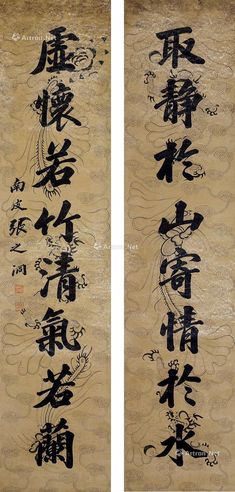 取静於山寄情於水
虛懷若竹清氣若蘭
南皮張之洞
Artron.Net
Artron.Net
Artron.Net
Artron.Net